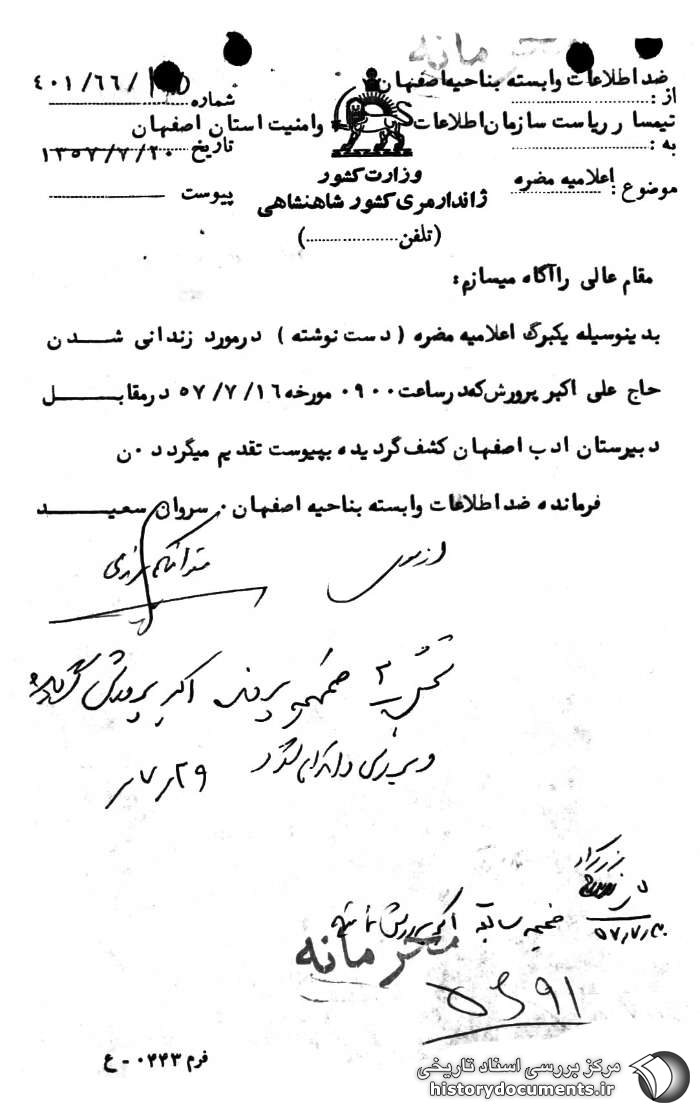 محرمانه
از : ضد اطلاعات وابسته بناحیه اصفهان
به : تیمسار ریاست سازمان اطلاعات وامنیت استان اصفهان
موضوع : اعلامیه مضره
شماره ۴۰۱/۶۶/
تاریخ ۱۳۵۷/۷/۲۰
پیوست
وزارت کشور
ژاندارمری کشور شاهنشاهی
(تلفن ..................)
مقام عالی راآگاه میسازم:
بدینوسیله یکبرگ اعلامیه مضره ( دست نوشته ) درمورد زندانی شدن
حاج علی اکبر پرورش که‌درساعت ۰۹۰۰ مورخه ۵۷/۷/۱۶ درمقابل
دبیرستان ادب اصفهان کشف گردیده بپیوست تقدیم میگردد ۰ن
فرمانده ضد اطلاعات وابسته بناحیه اصفهان ۰ سروان سعید
از سوی
بخش ۳ ضمیمه پرونده اکبر پرورش گردیده
۲۹ر۷ر
ضمیمه سابقه اکبر پرورش
۵۷٫۷٫۳۰
محرمانه
فرم ۰۴۴۳ - ع
مرکز بررسی اسناد تاریخی
historydocuments.ir